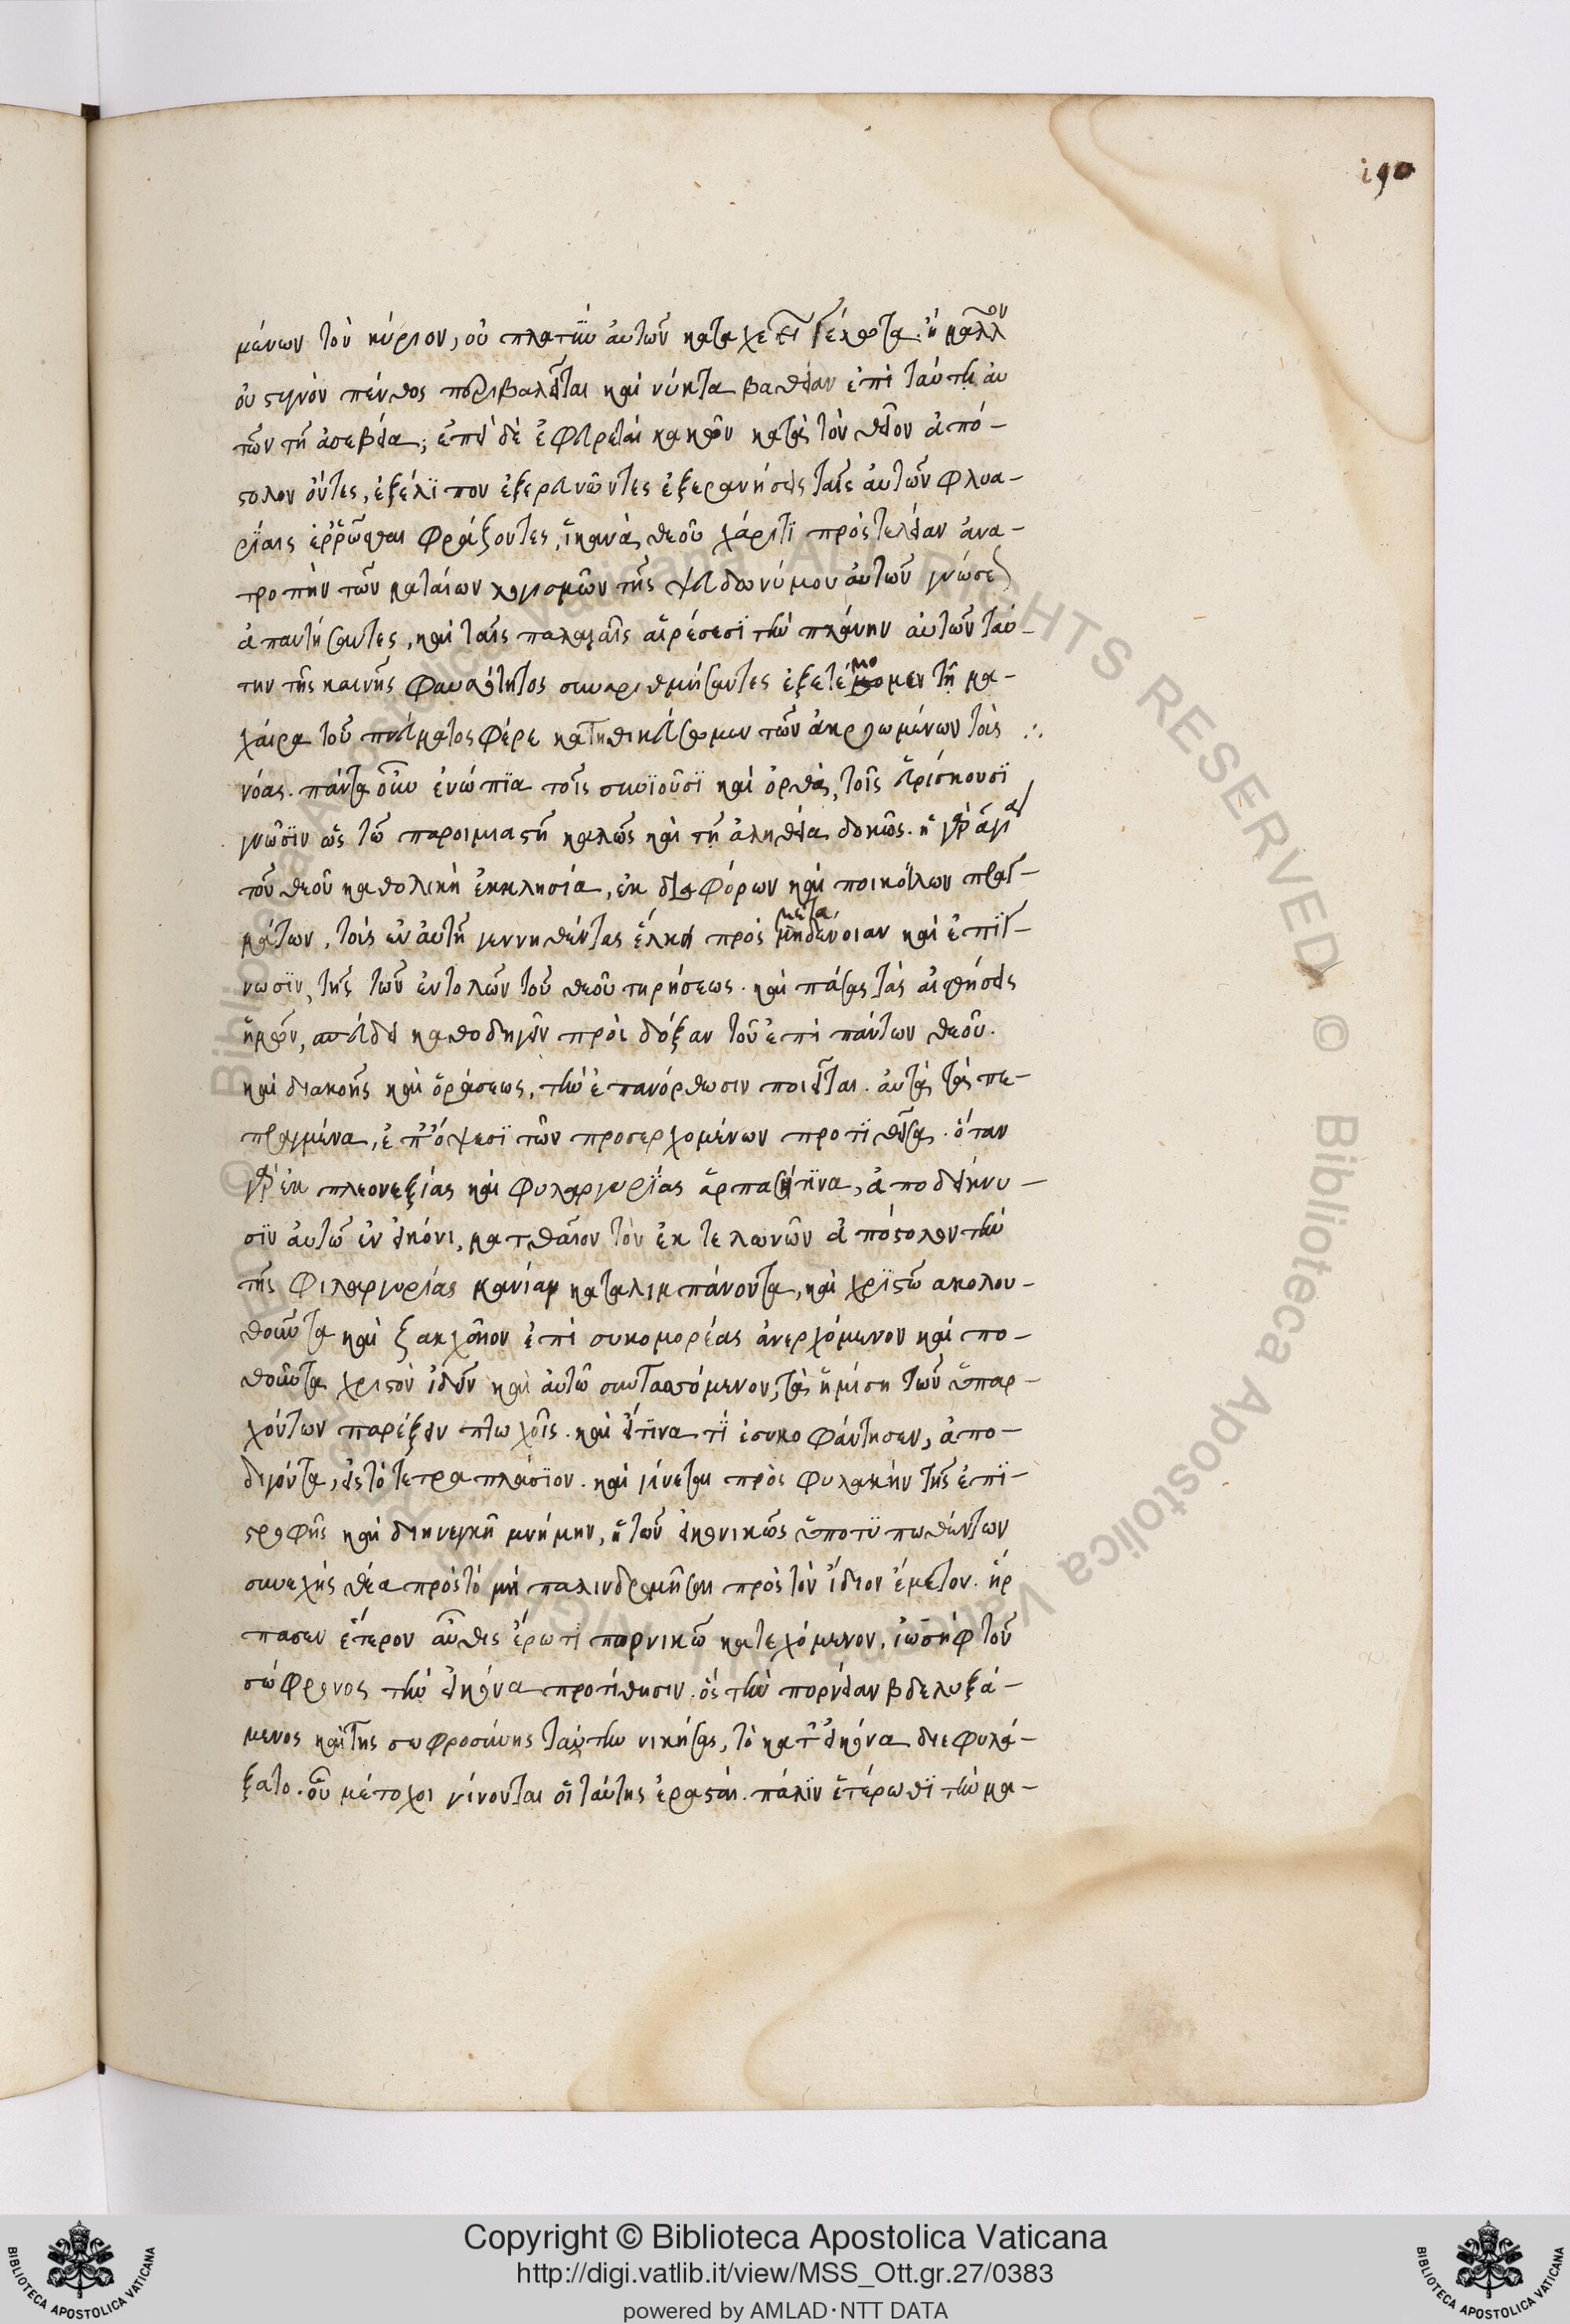 190
μένων τὸν κύριον, οὐ πλατὺν αὐτῶν καταχέει γέλωτα. ἢ μᾶλλον
οὐ στυγνὸν πένθος περιβαλεῖται καὶ νύκτα βαθεῖαν ἐπὶ ταύτη αὐ
τῶν τῆ ἀσεβεία; ἐπεὶ δὲ ἐφευρεταὶ κακῶν κατὰ τὸν θεῖον ἀπό-
στολον ὄντες, ἐξέλιπον ἐξερευνῶντες ἐξερευνήσεις ταῖς αὐτῶν φλυα-
ρίαις ἐρρῶσθαι φράξοντες, ἱκανὰ θεοῦ χάριτι πρὸς τελείαν ἀνα-
τροπὴν τῶν ματαίων λογισμῶν τῆς ψευδωνύμου αὐτῶν γνώσεως
ἀπαντήσαντες, καὶ ταῖς παλαιαῖς αἱρέσεσι τὴν πλάνην αὐτῶν ταύ-
την τῆς καινῆς φαυλότητος συναριθμήσαντες ἐξετέμομεν τῆ μα-
χαίρα τοῦ πνεύματος φέρε κατηθικεύσωμεν τῶν ἀκροωμένων τὰς ∴
νόας. πάντα οὖν ἐνώπια τοῖς συνιοῦσι καὶ ὀρθὰ, τοῖς εὑρίσκουσι
γνῶσιν ὡς τῶ παροιμιαστῆ καλῶς καὶ τῆ ἀληθεία δοκῶς. ἡ γὰρ ἁγία
τοῦ θεοῦ καθολικὴ ἐκκλησία, ἐκ διαφόρων καὶ ποικίλων πραγ-
μάτων, τοὺς ἐν αὐτῆ γεννηθέντας ἕλκει πρὸς μετάνοιαν καὶ ἐπίγ-
νωσιν, τῆς τῶν ἐντολῶν τοῦ θεοῦ τηρήσεως. καὶ πάσας τὰς αἰσθήσεις
ἡμῶν, σπεύδει καθοδηγεῖν πρὸς δόξαν τοῦ ἐπὶ πάντων θεοῦ.
καὶ δι ἀκοῆς καὶ ὁράσεως, τὴν ἐπανόρθωσιν ποιεῖται. αὐτὰ τὰ πε-
πραγμένα, ἐπ' ὄψεσι τῶν προσερχομένων προτιθεῖσα. ὅταν
γὰρ ἐκ πλεονεξίας καὶ φυλαργυρίας ἁρπάση τινα, ἀποδείκνυ-
σιν αὐτῶ ἐν εἰκόνι, ματθαῖον τὸν ἐκ τελωνῶν ἀπόστολον τὴν
τῆς φιλαργυρίας μανίαν καταλιμπάνοντα, καὶ χριστῶ ακολου-
θοῦντα καὶ ζακχαῖον ἐπὶ συκομορέας ἀνερχόμενον καὶ πο-
θοῦντα χριστὸν ἰδεῖν καὶ αὐτῶ συντασσόμενον, τὰ ἡμίση τῶν ὑπαρ-
χόντων παρέξειν πτωχοῖς. καὶ εἴ τινα τί ἐσυκοφάντησεν, ἀπο-
διδόντα, εἰς τὸ τετραπλάσιον. καὶ γίνεται πρὸς φυλακὴν τῆς ἐπι-
στροφῆς καὶ διηνεκῆ μνήμην, ἡ τῶν εἰκονικῶς ὑποτυπωθέντων
συνεχὴς θέα πρὸς τὸ μὴ παλινδρομῆσαι πρὸς τὸν ἴδιον ἔμετον. ἥρ
πασεν ἕτερον αὖθις ἔρωτι πορνικῶ κατεχόμενον, ἰωσὴφ τοῦ
σώφρονος τὴν εἰκόνα προτίθησιν. ὃς τὴν πορνείαν βδελυξά-
μενος καὶ τῆς σωφροσύνης ταύτην νικήσας, τὸ κατ' εἰκόνα διεφυλά-
ξατο. οὗ μέτοχοι γίνονται οἱ ταύτης ἐρασταί. πάλιν ἑτέρωθι τὴν μα-
Copyright © Biblioteca Apostolica Vaticana
http://digi.vatlib.it/view/MSS_Ott.gr.27/0383
powered by AMLAD·NTT DATA